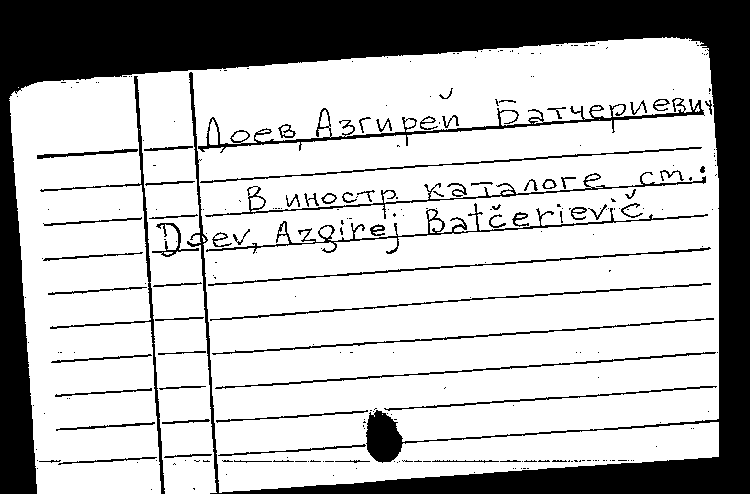 Доев, Азгирей Батчериевич
В иностр каталоге см.:
Doev, Azgirej Batčerievič.